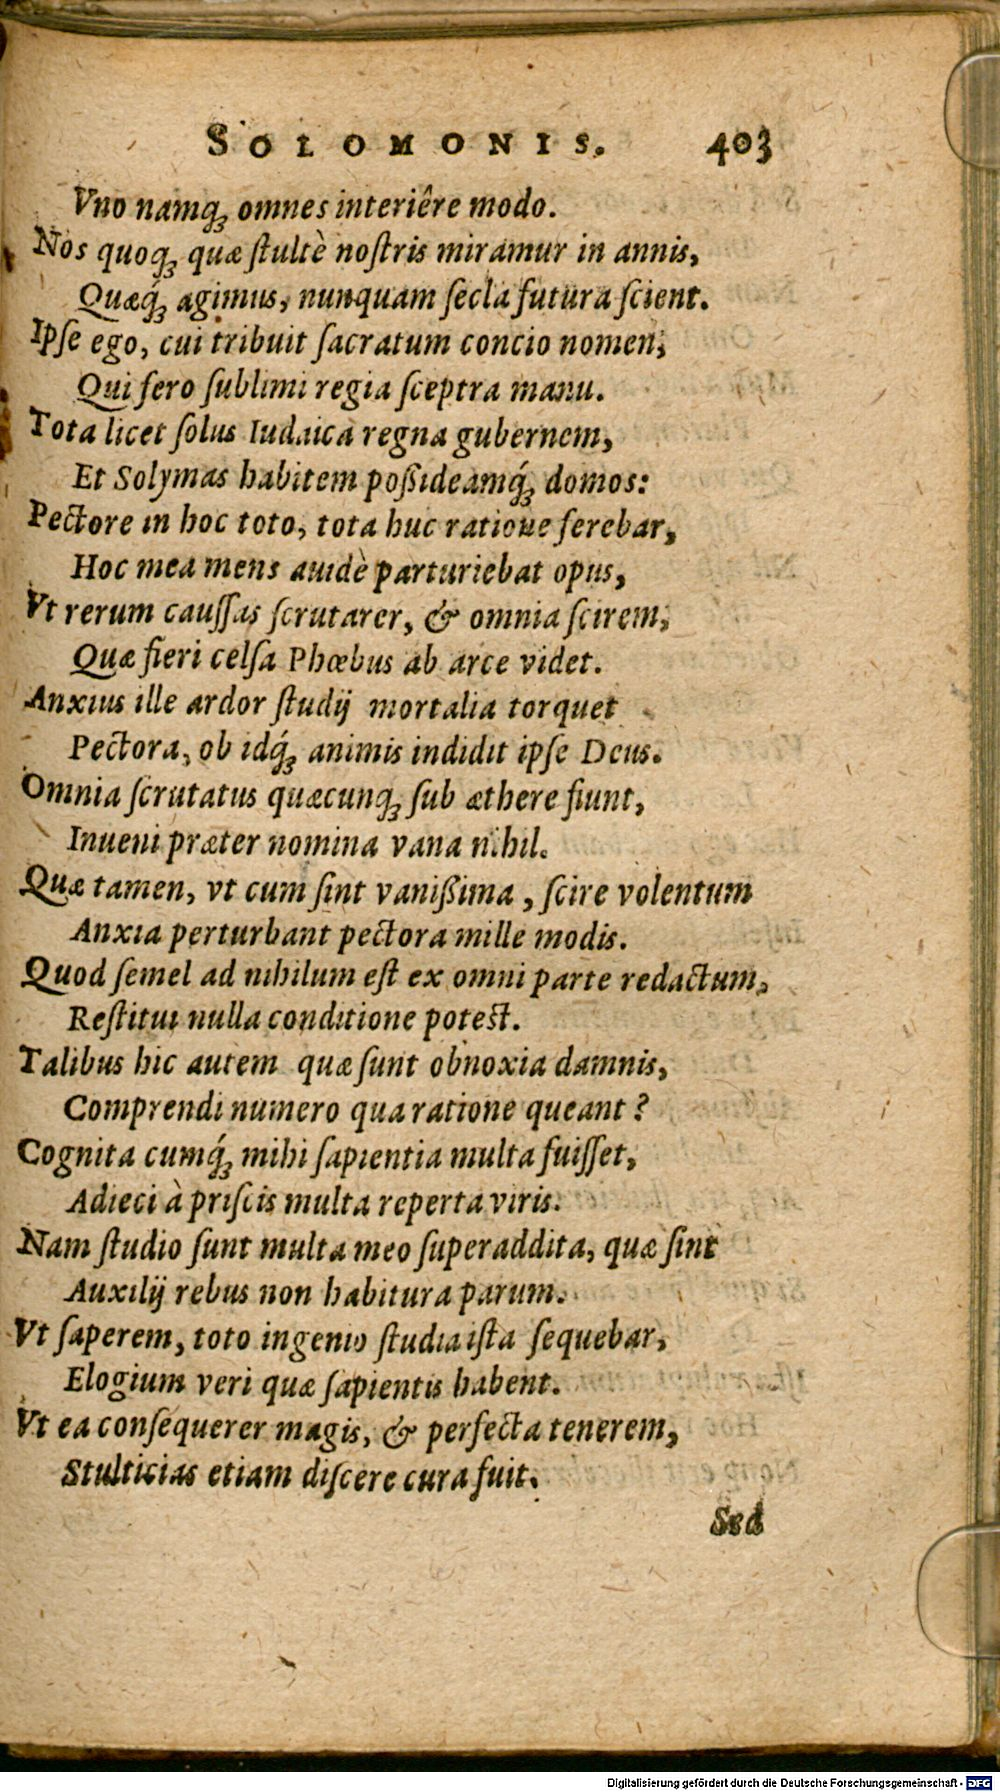 SOLOMONIS. 403
Vno namq́ꝫ omnes interiêre modo.
Nos quoqꝫ quæ ſtultè noſtris miramur in annis,
Quæq́ꝫ agimus, nunquam ſecla futura ſcient.
Ipſe ego, cui tribuit ſacratum concio nomen,
Qui fero ſublimi regia ſceptra manu.
Tota licet ſolus Iudaica regna gubernem,
Et Solymas habitem poßideamq́ꝫ domos:
Pectore in hoc toto, tota huc ratione ferebar,
Hoc mea mens auidè parturiebat opus,
Vt rerum cauſſas ſcrutarer, & omnia ſcirem,
Quæ fieri celſa Phœbus ab arce videt.
Anxius ille ardor ſtudij mortalia torquet
Pectora, ob idq́ꝫ animis indidit ipſe Deus.
Omnia ſcrutatus quæcunqꝫ ſub æthere fiunt,
Inueni præter nomina vana nihil.
Quæ tamen, vt cum ſint vanißima, ſcire volentum
Anxia perturbant pectora mille modis.
Quod ſemel ad nihilum eſt ex omni parte redactum,
Reſtitui nulla conditione poteſt.
Talibus hic autem quæ ſunt obnoxia damnis,
Comprendi numero qua ratione queant?
Cognita cumq́ꝫ mihi ſapientia multa fuiſſet,
Adieci à priſcis multa reperta viris.
Nam ſtudio ſunt multa meo ſuperaddita, quæ ſint
Auxilij rebus non habitura parum.
Vt ſaperem, toto ingenio ſtudia iſta ſequebar,
Elogium veri quæ ſapientis habent.
Vt ea conſequerer magis, & perfecta tenerem,
Stulticias etiam diſcere cura fuit.
Sed
Digitalisierung gefördert durch die Deutsche Forschungsgemeinschaft - DFG